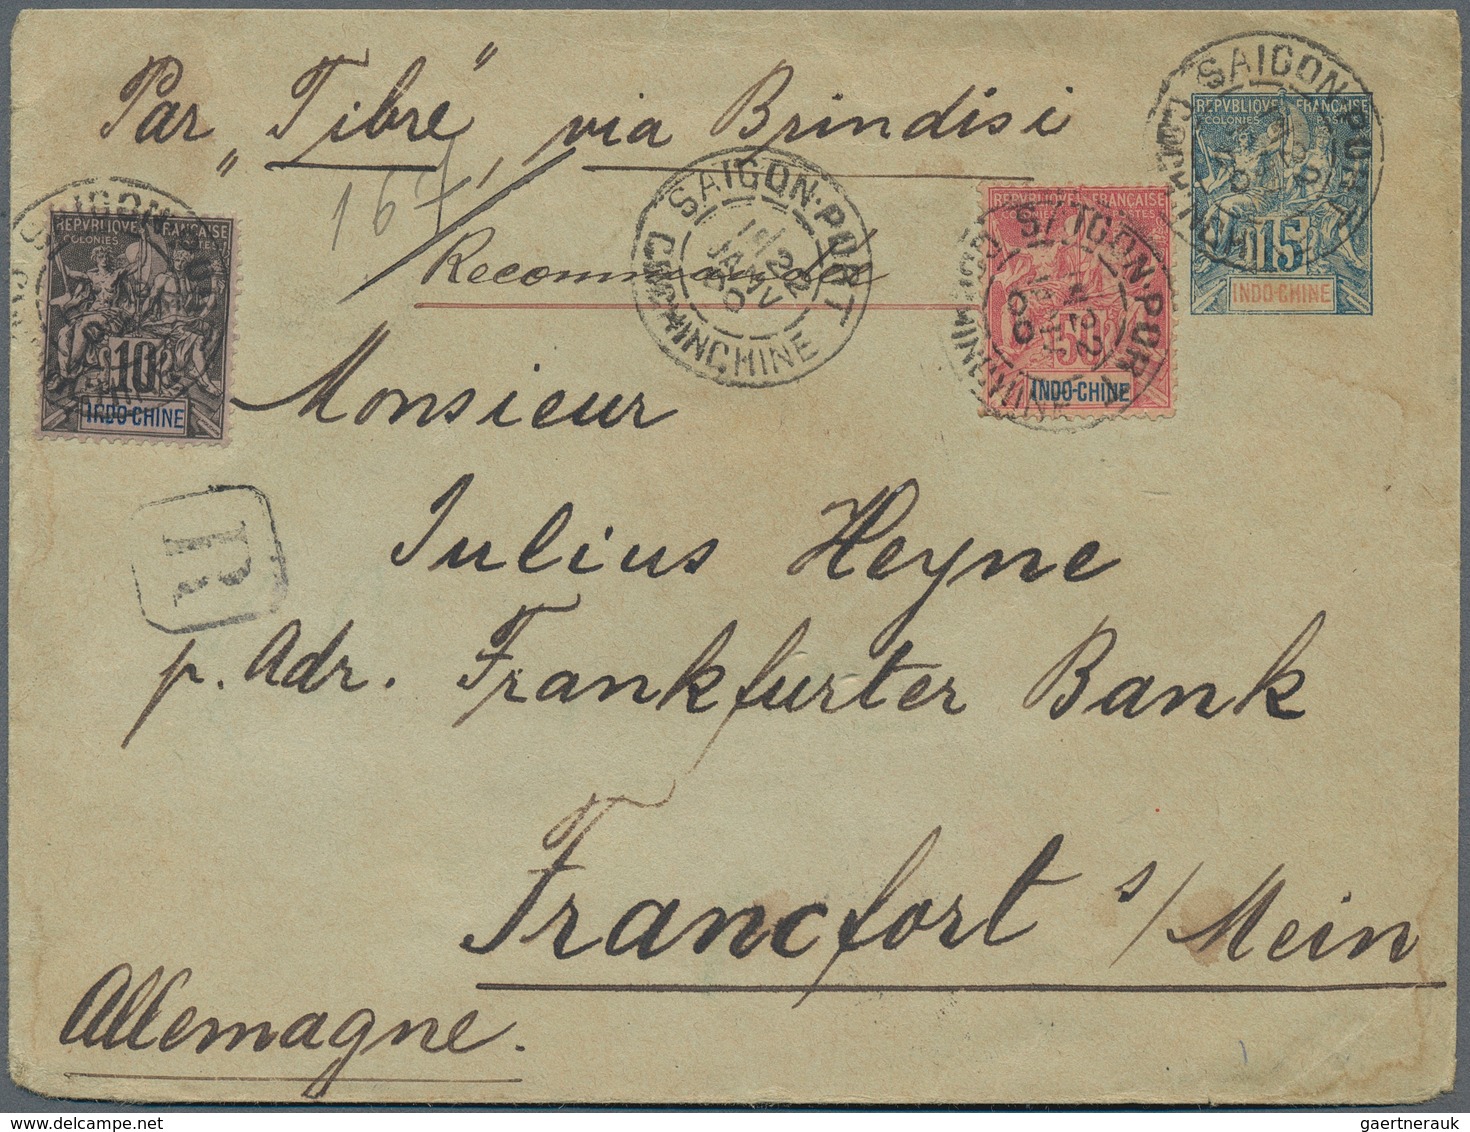 Par "Tibre", via Brindisi
167
Recommandée
SAIGON·PORT
1E/22
JANV
00
COCHINCHINE
REPVBLIQVE FRANÇAISE
COLONIES POSTES
10
INDO-CHINE
SAIGON·PORT
REPVBLIQVE FRANÇAISE
COLONIES POSTES
50
INDO-CHINE
SAIGON·PORT
COCHINCHINE
REPVBLIQVE FRANÇAISE
COLONIES POSTES
15
INDO-CHINE
SAIGON·PORT
COCHINCHINE
R
Monsieur
Julius Heyne
p. Adr. Frankfurter Bank
Francfort s/Mein
Allemagne.
gaertnerauk